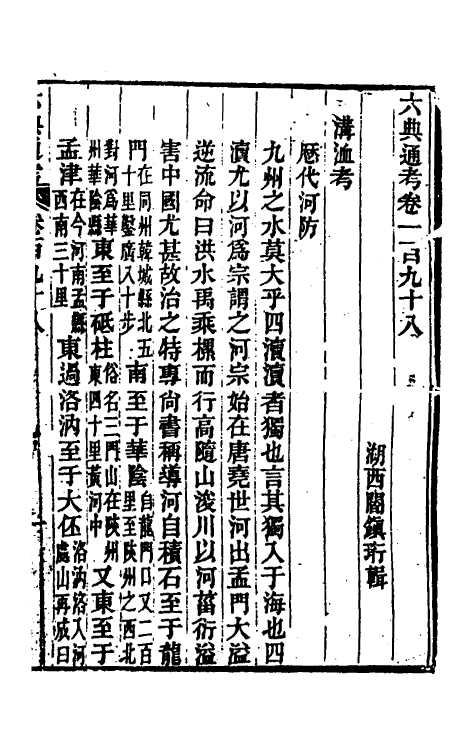 六典通考卷一百九十八
湖西閻鎮珩輯
溝洫考
歷代河防
九州之水莫大乎四瀆瀆者獨也言其獨入于海也四
瀆尤以河爲宗謂之河宗始在唐堯世河出孟門大溢
逆流命曰洪水禹乘樏而行高隨山浚川以河菑衍溢
害中國尤甚故治之特專尙書稱導河自積石至于龍
門在同州韓城縣北五十里鑿廣八十步南至于華陰自龍門口又二百里至陝州之西北
對河爲華州華陰縣東至于砥柱俗名三門山在陝州東四十里黃河中又東至于
孟津在今河南孟縣西南三十里東過洛汭至于大伾洛汭洛入河處山再成曰